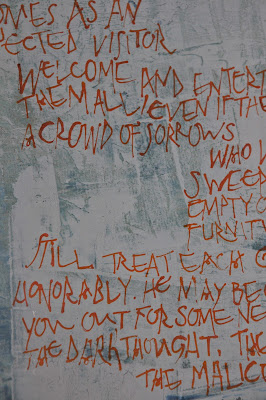 OMES AS AN
PECTED VISITOR
WELCOME AND ENTERT
THEM ALL! EVEN IF THE
A CROWD OF SORROWS
WHO V
SWEEP
EMPTY O
FURNIT
STILL TREAT EACH G
HONORABLY. HE MAY BE
YOU OUT FOR SOME NE
THE DARK THOUGHT, THE
THE MALIC